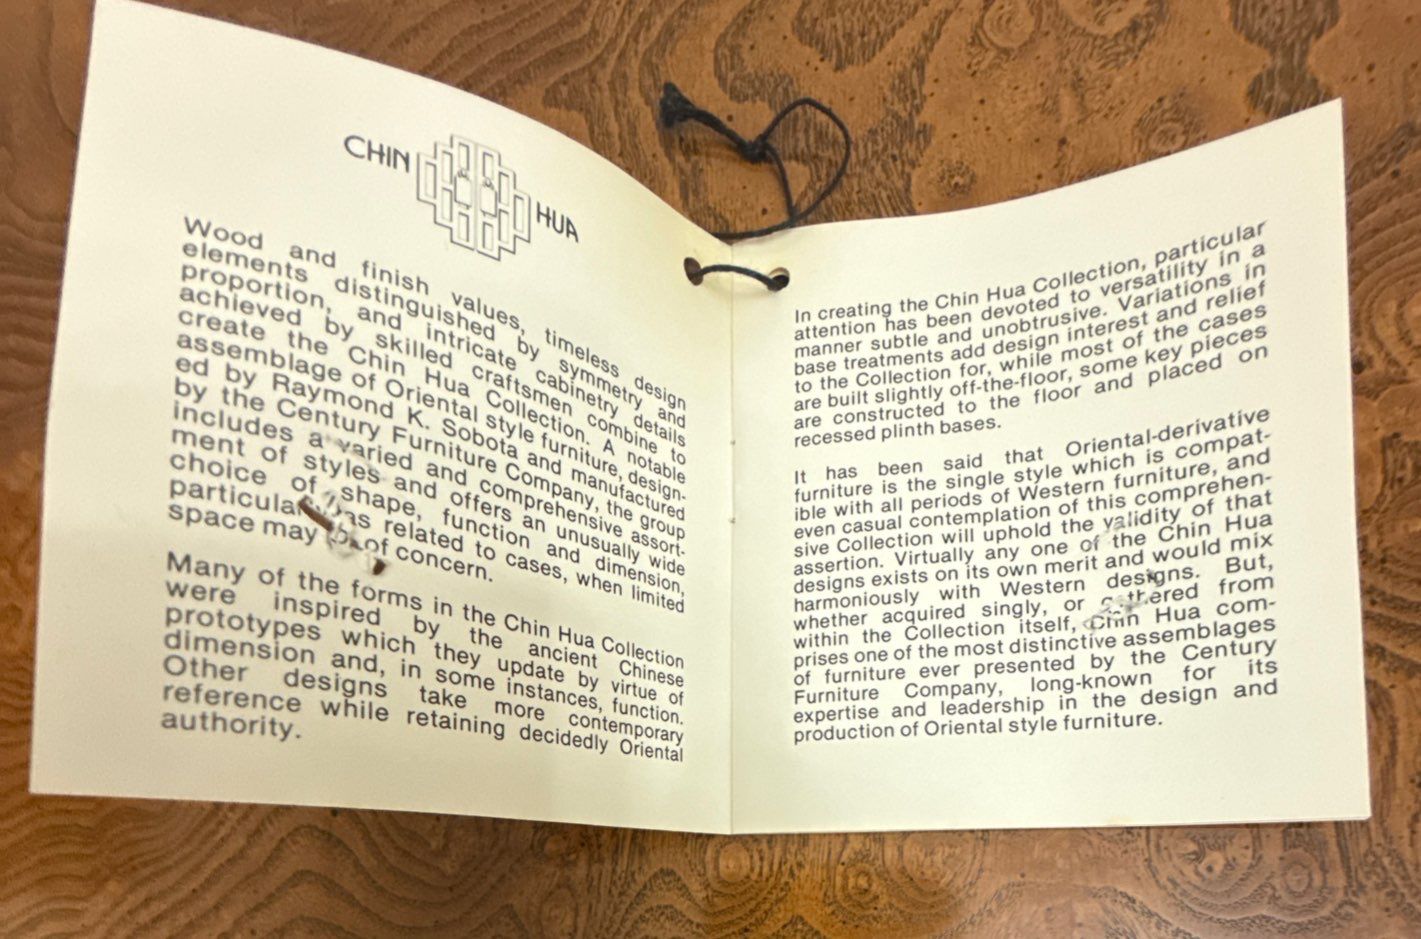 CHIN HUA
Wood and finish values, timeless design
elements distinguished by symmetry and
proportion, and intricate cabinetry details
achieved by skilled craftsmen combine to
create the Chin Hua Collection. A notable
assemblage of Oriental style furniture, design-
ed by Raymond K. Sobota and manufactured
by the Century Furniture Company, the group
includes a varied and comprehensive assort-
ment of styles and offers an unusually wide
choice of shape, function and dimension,
particularly as related to cases, when limited
space may be of concern.
Many of the forms in the Chin Hua Collection
were inspired by the ancient Chinese
prototypes which they update by virtue of
dimension and, in some instances, function.
Other designs take more contemporary
reference while retaining decidedly Oriental
authority.
In creating the Chin Hua Collection, particular
attention has been devoted to versatility in a
manner subtle and unobtrusive. Variations in
base treatments add design interest and relief
to the Collection for, while most of the cases
are built slightly off-the-floor, some key pieces
are constructed to the floor and placed on
recessed plinth bases.
It has been said that Oriental-derivative
furniture is the single style which is compat-
ible with all periods of Western furniture, and
even casual contemplation of this comprehen-
sive Collection will uphold the validity of that
assertion. Virtually any one of the Chin Hua
designs exists on its own merit and would mix
harmoniously with Western designs. But,
whether acquired singly, or gathered from
within the Collection itself, Chin Hua com-
prises one of the most distinctive assemblages
of furniture ever presented by the Century
Furniture Company, long-known for its
expertise and leadership in the design and
production of Oriental style furniture.